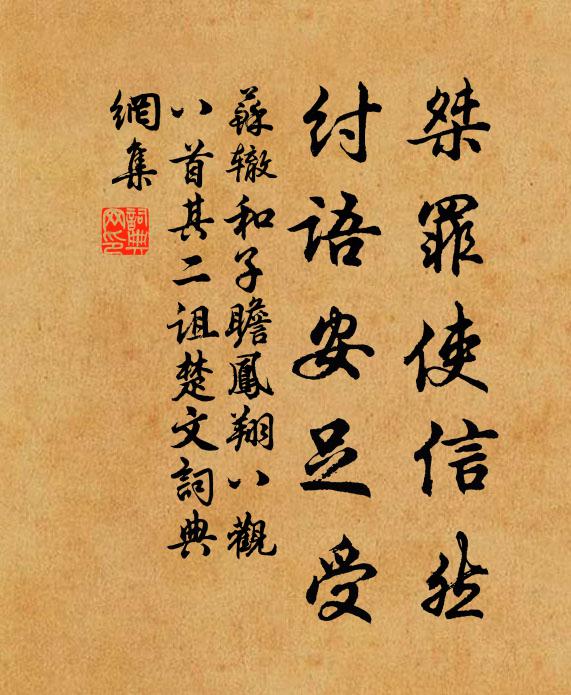 桀罪使信然
紂語安足受
蘇轍和子瞻鳳翔八觀
八首其二詛楚文詞典
網集
詞典網印